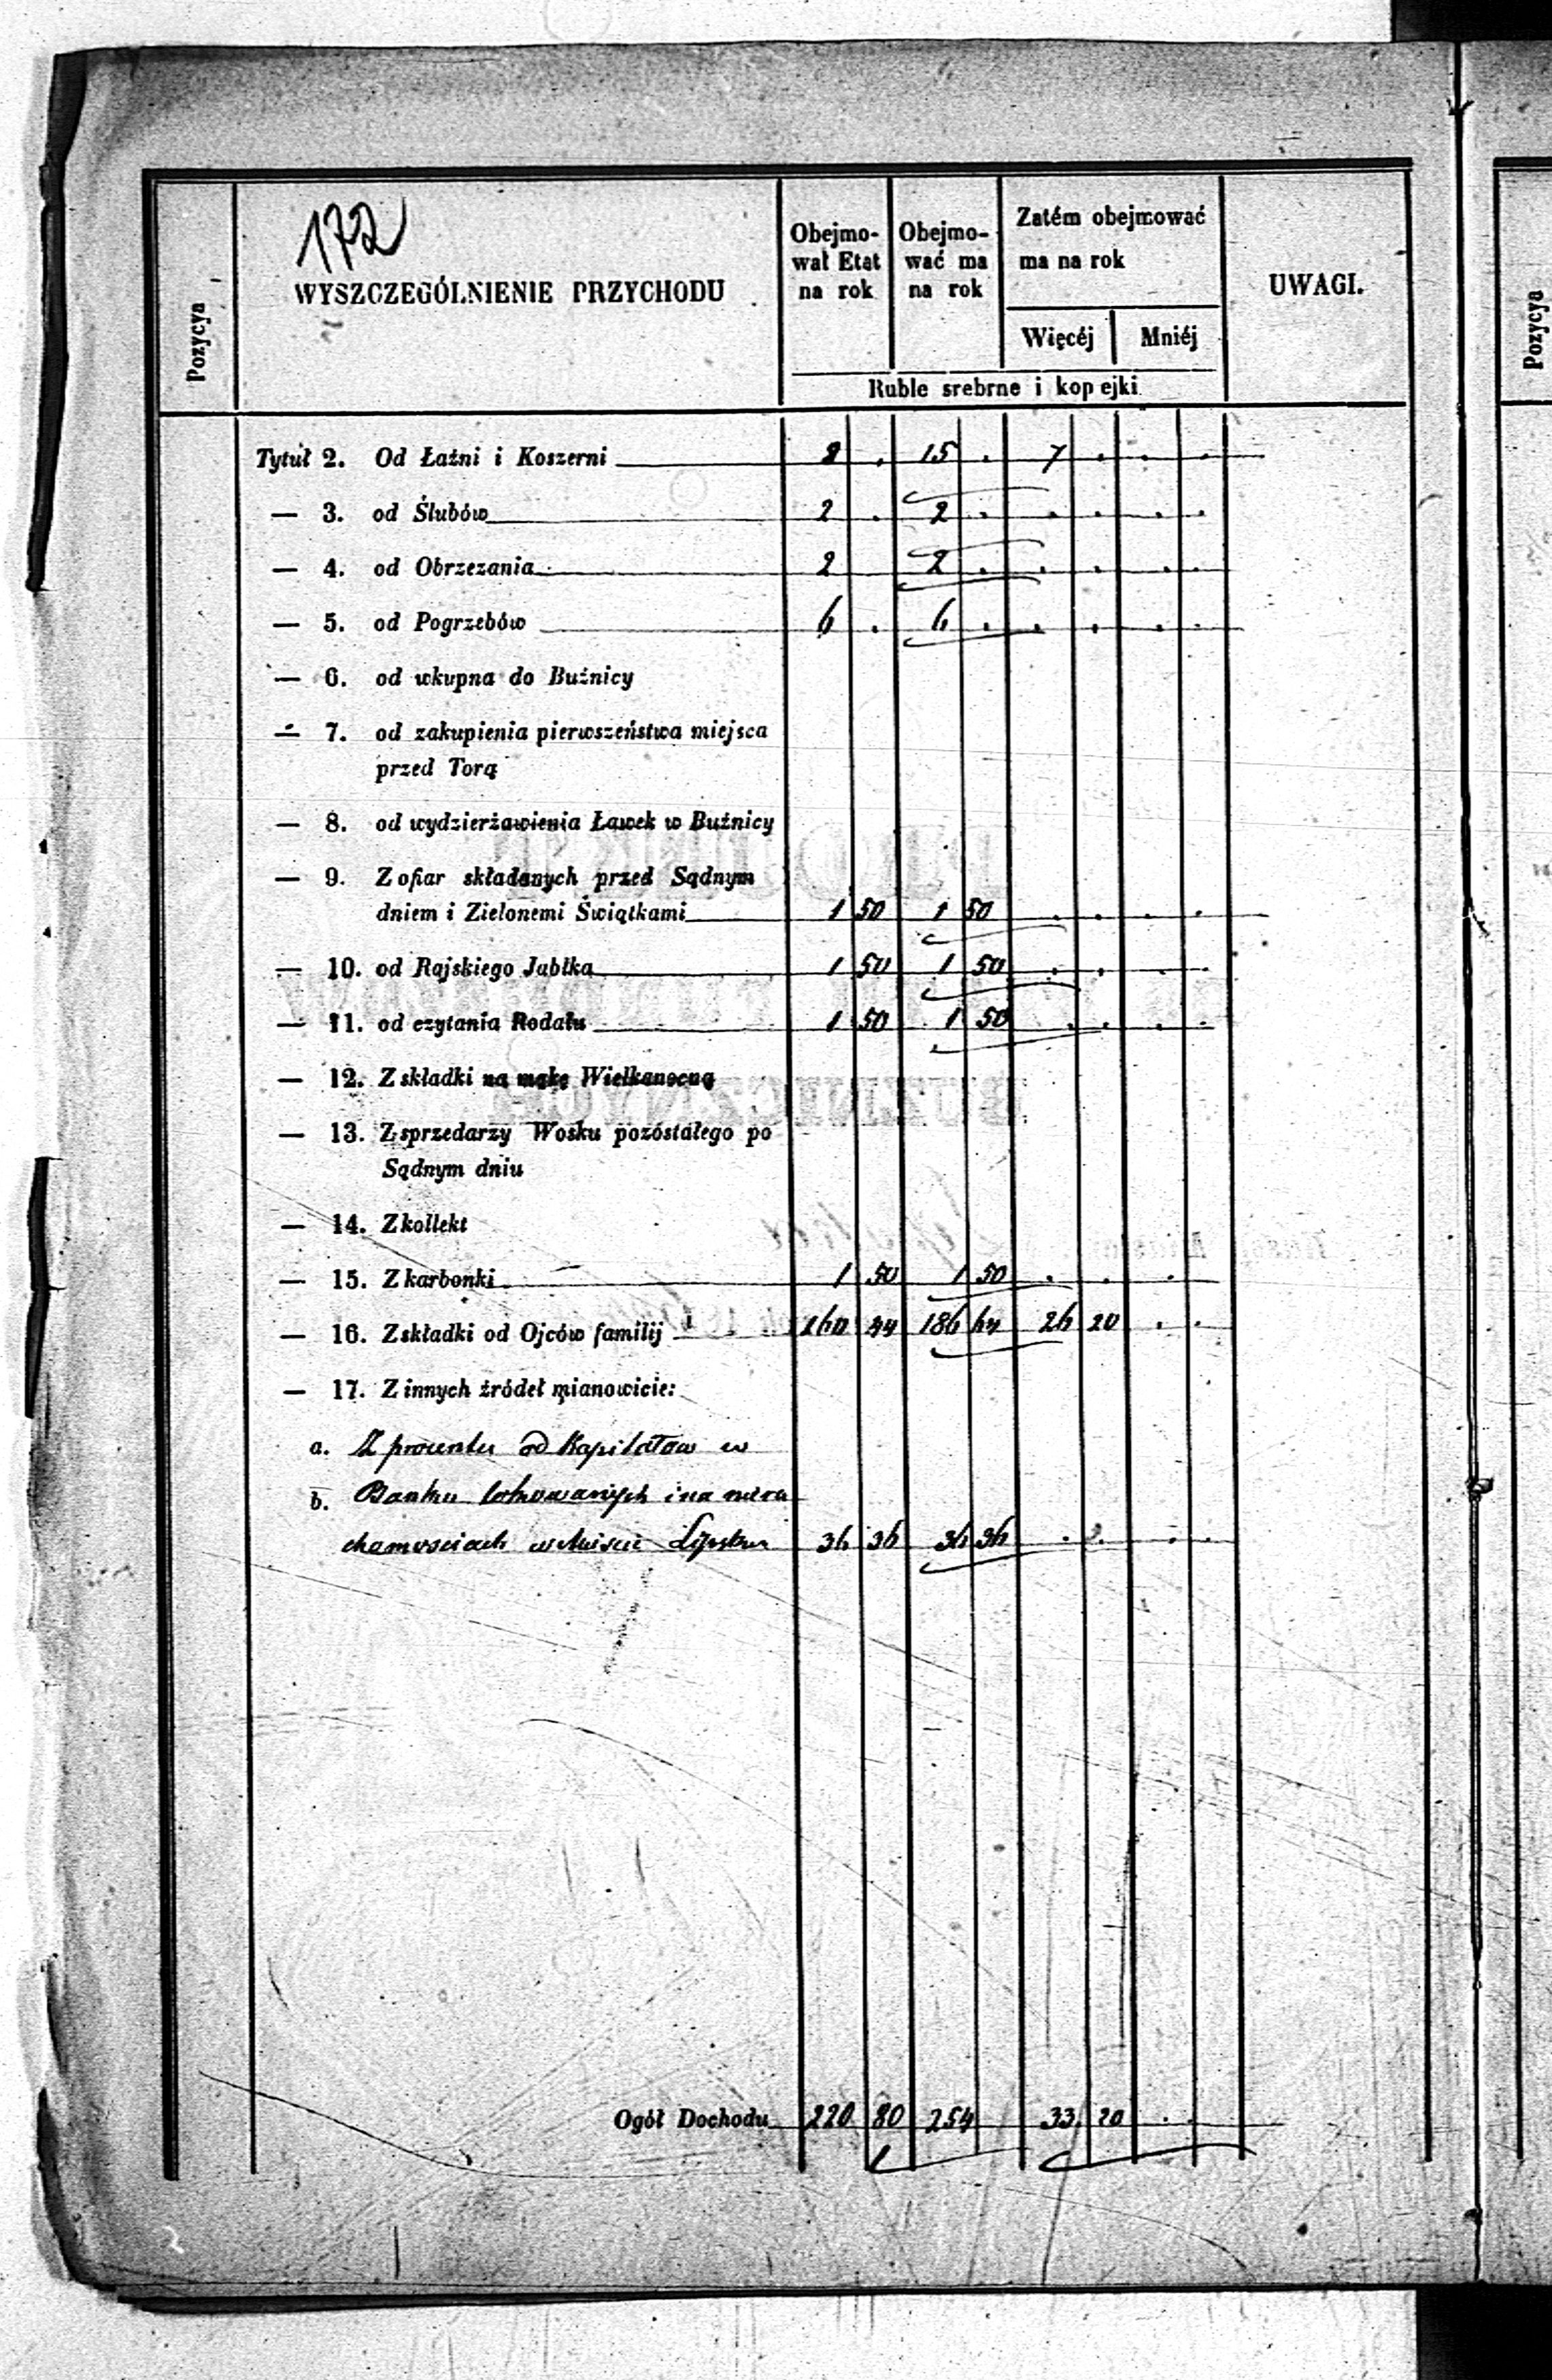 172
Pozycya
WYSZCZEGÓLNIENIE PRZYCHODU
Obejmo-
wał Etat
na rok
Obejmo-
wać ma
na rok
Zatém obejmować
ma na rok
Więcéj Mniéj
Ruble srebrne i kopejki
UWAGI.
Pozycya
Tytuł 2. Od Łaźni i Koszerni 8 . 15 . 7 . . .
— 3. od Ślubów 2 . 2 . . . . .
— 4. od Obrzezania 2 2 . . . . .
— 5. od Pogrzebów 6 . 6 . . . . .
— 6. od wkupna do Buźnicy
— 7. od zakupienia pierwszeństwa miejsca
przed Torą
— 8. od wydzierżawienia Ławek w Buźnicy
— 9. Z ofiar składanych przed Sądnym
dniem i Zielonemi Świątkami 1 50 1 50 . . . .
— 10. od Rajskiego Jabłka 1 50 1 50 . . . .
— 11. od czytania Rodału 1 50 1 50 . . . .
— 12. Z składki na mąkę Wielkanocną
— 13. Z sprzedarzy Wosku pozóstałego po
Sądnym dniu
— 14. Z kollekt
— 15. Z karbonki 1 50 1 50 . . .
— 16. Z składki od Ojców familij 160 44 186 64 26 20 . .
— 17. Z innych źródeł mianowicie:
a. Z procentu od Kapitałow w
b. Banku lokowanych i na nieru
chomosciach w Mieście Lipsku 36 36 36 36 . . . .
Ogół Dochodu 220 80 254 33 20 . .
2